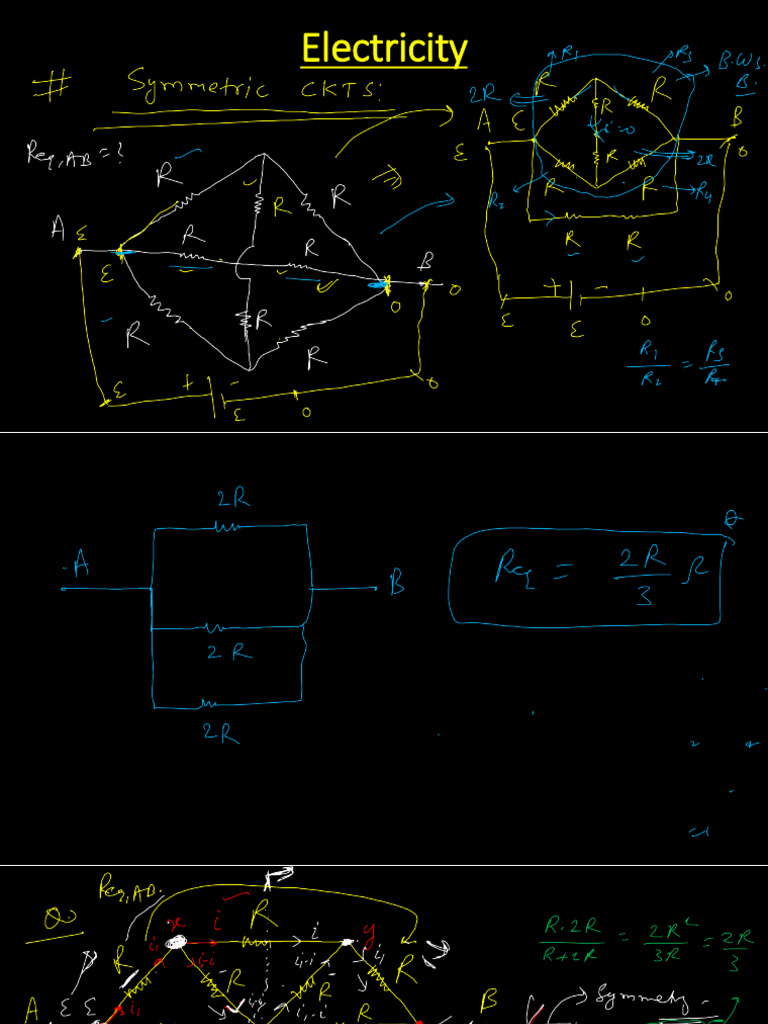 Electricity
# Symmetric CKTS:
Req,AB = ?
R
R
R
R
R
R
R
R
A
ε
ε
B
0
0
ε
+
-
ε
0
0
R1
R3
B.W.S.B.
2R
R
R
A
ε
R
i=0
B
ε
R
2R
0
R2
R
R
R4
R
R
+
-
ε
ε
0
0
R1/R2 = R3/R4
2R
A
B
2R
2R
Req = 2R/3 Ω
Req,AB.
Q.
x
i
R
i
y
i1
R
R
R
R
R
i1
A
ε
ε
B
R·2R/R+2R = 2R²/3R = 2R/3
Symmetry